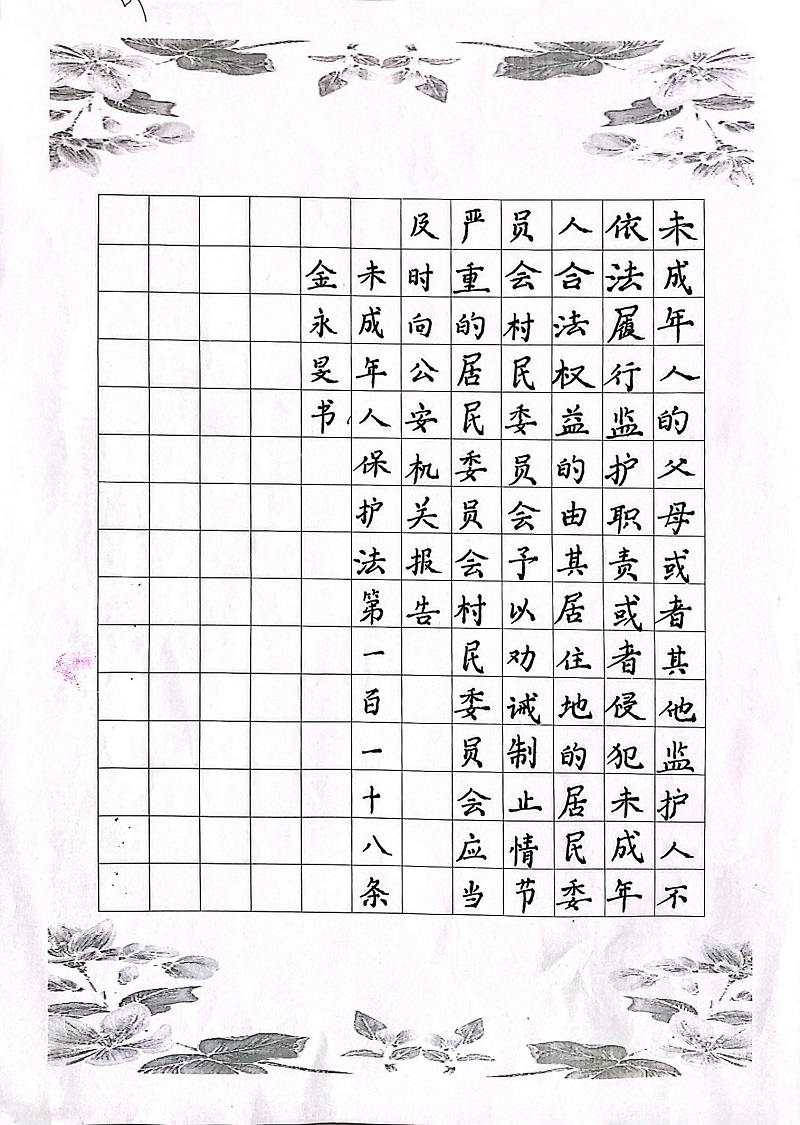 未成年人的父母或者其他监护人不
依法履行监护职责或者侵犯未成年
人合法权益的由其居住地的居民委
员会村民委员会予以劝诫制止情节
严重的居民委员会村民委员会应当
及时向公安机关报告
未成年人保护法第一百一十八条
金永旻书